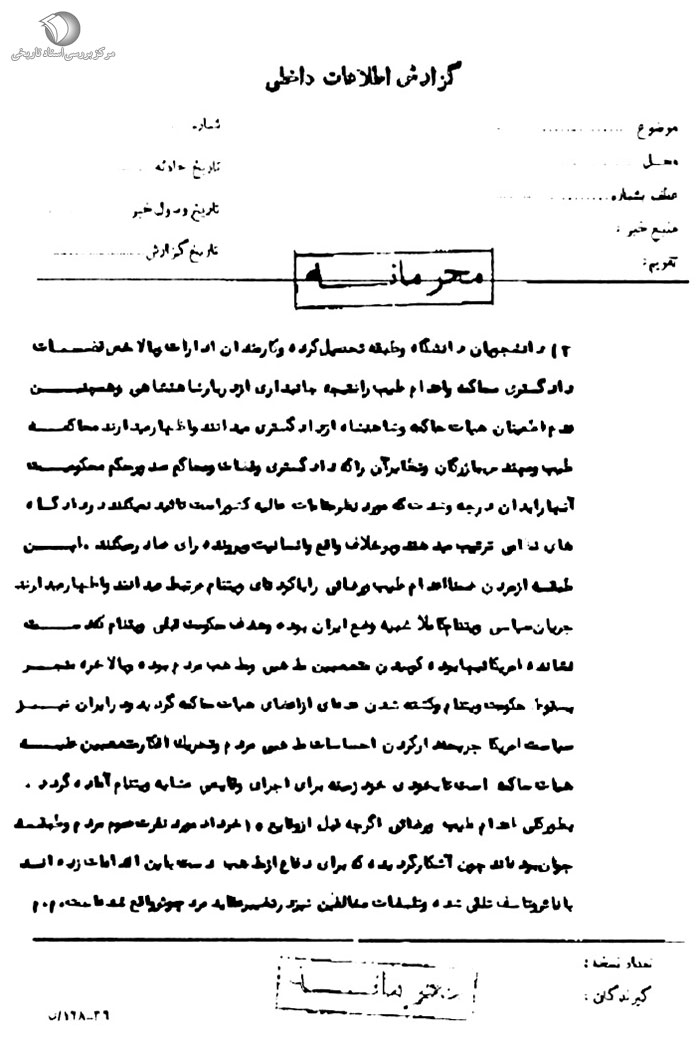 مرکز بررسی اسناد تاریخی
گزارش اطلاعات داخلی
موضوع
شماره
محل
تاریخ حادثه
عطف بشماره
تاریخ وصول خبر
منبع خبر :
تاریخ گزارش
تقویم :
محرمانه
۲) دانشجویان دانشگاه وطبقه تحصیل کرده وکارمندان ادارات وبالاخص قضات
دادگستری محاکمه واعدام طیب رانتیجه جانبداری از دربارشاهنشاهی وهمچنین
عدم اطمینان هیات حاکمه وشاهنشاه ازدادگستری میدانند واظهارمیدارند محاکمه
طیب وچند میبازرگان را که دادگستری وقضات ومحاکم صدورحکم محکومیت
آنهارابدان درجه وشدت که مورد نظرمقامات عالیه کشوراست تائید نمیکند دردادگاه
های نظامی ترتیب میدهند وبرخلاف واقع وانسانیت وپرونده رای صادرمیکنند .این
طبقه ازمردم ضمنااعدام طیب ورضائی راباکودتای ویتنام مرتبط میدانند واظهارمیدارند
جریان سیاسی ویتنام کاملا شبیه وضع ایران بوده وهدف حکومت قبلی ویتنام که دست
نشانده امریکائیها بوده کوبیدن متعصبین مذهبی ومذهب مردم بوده وبالاخره منجر
بسقوط حکومت ویتنام وکشته شدن عده‌ای ازاعضای هیات حاکمه گردید ودرایران نیز
سیاست امریکا جریحه‌دارکردن احساسات مذهبی مردم وتحریک افکارمتعصبین علیه
هیات حاکمه است تابخودی خود زمینه برای اجرای وقایعی مشابه ویتنام آماده گردد .
بطورکلی اعدام طیب ورضائی اگرچه قبل ازوقایع ۱۵ خرداد مورد نفرت عموم مردم وطبقه
جوان بوده‌اند چون آشکارگردیده که برای دفاع ازمذهب دست باین اقدامات زده‌اند
باتاثروتاسف تلقی شده وتبلیغات مخالفین نیزدرتغییرعقاید مردم موثرواقع شده‌است. م.م
تعداد نسخه :
گیرندگان :
محرمانه
۳۶-۱۲۸/ب